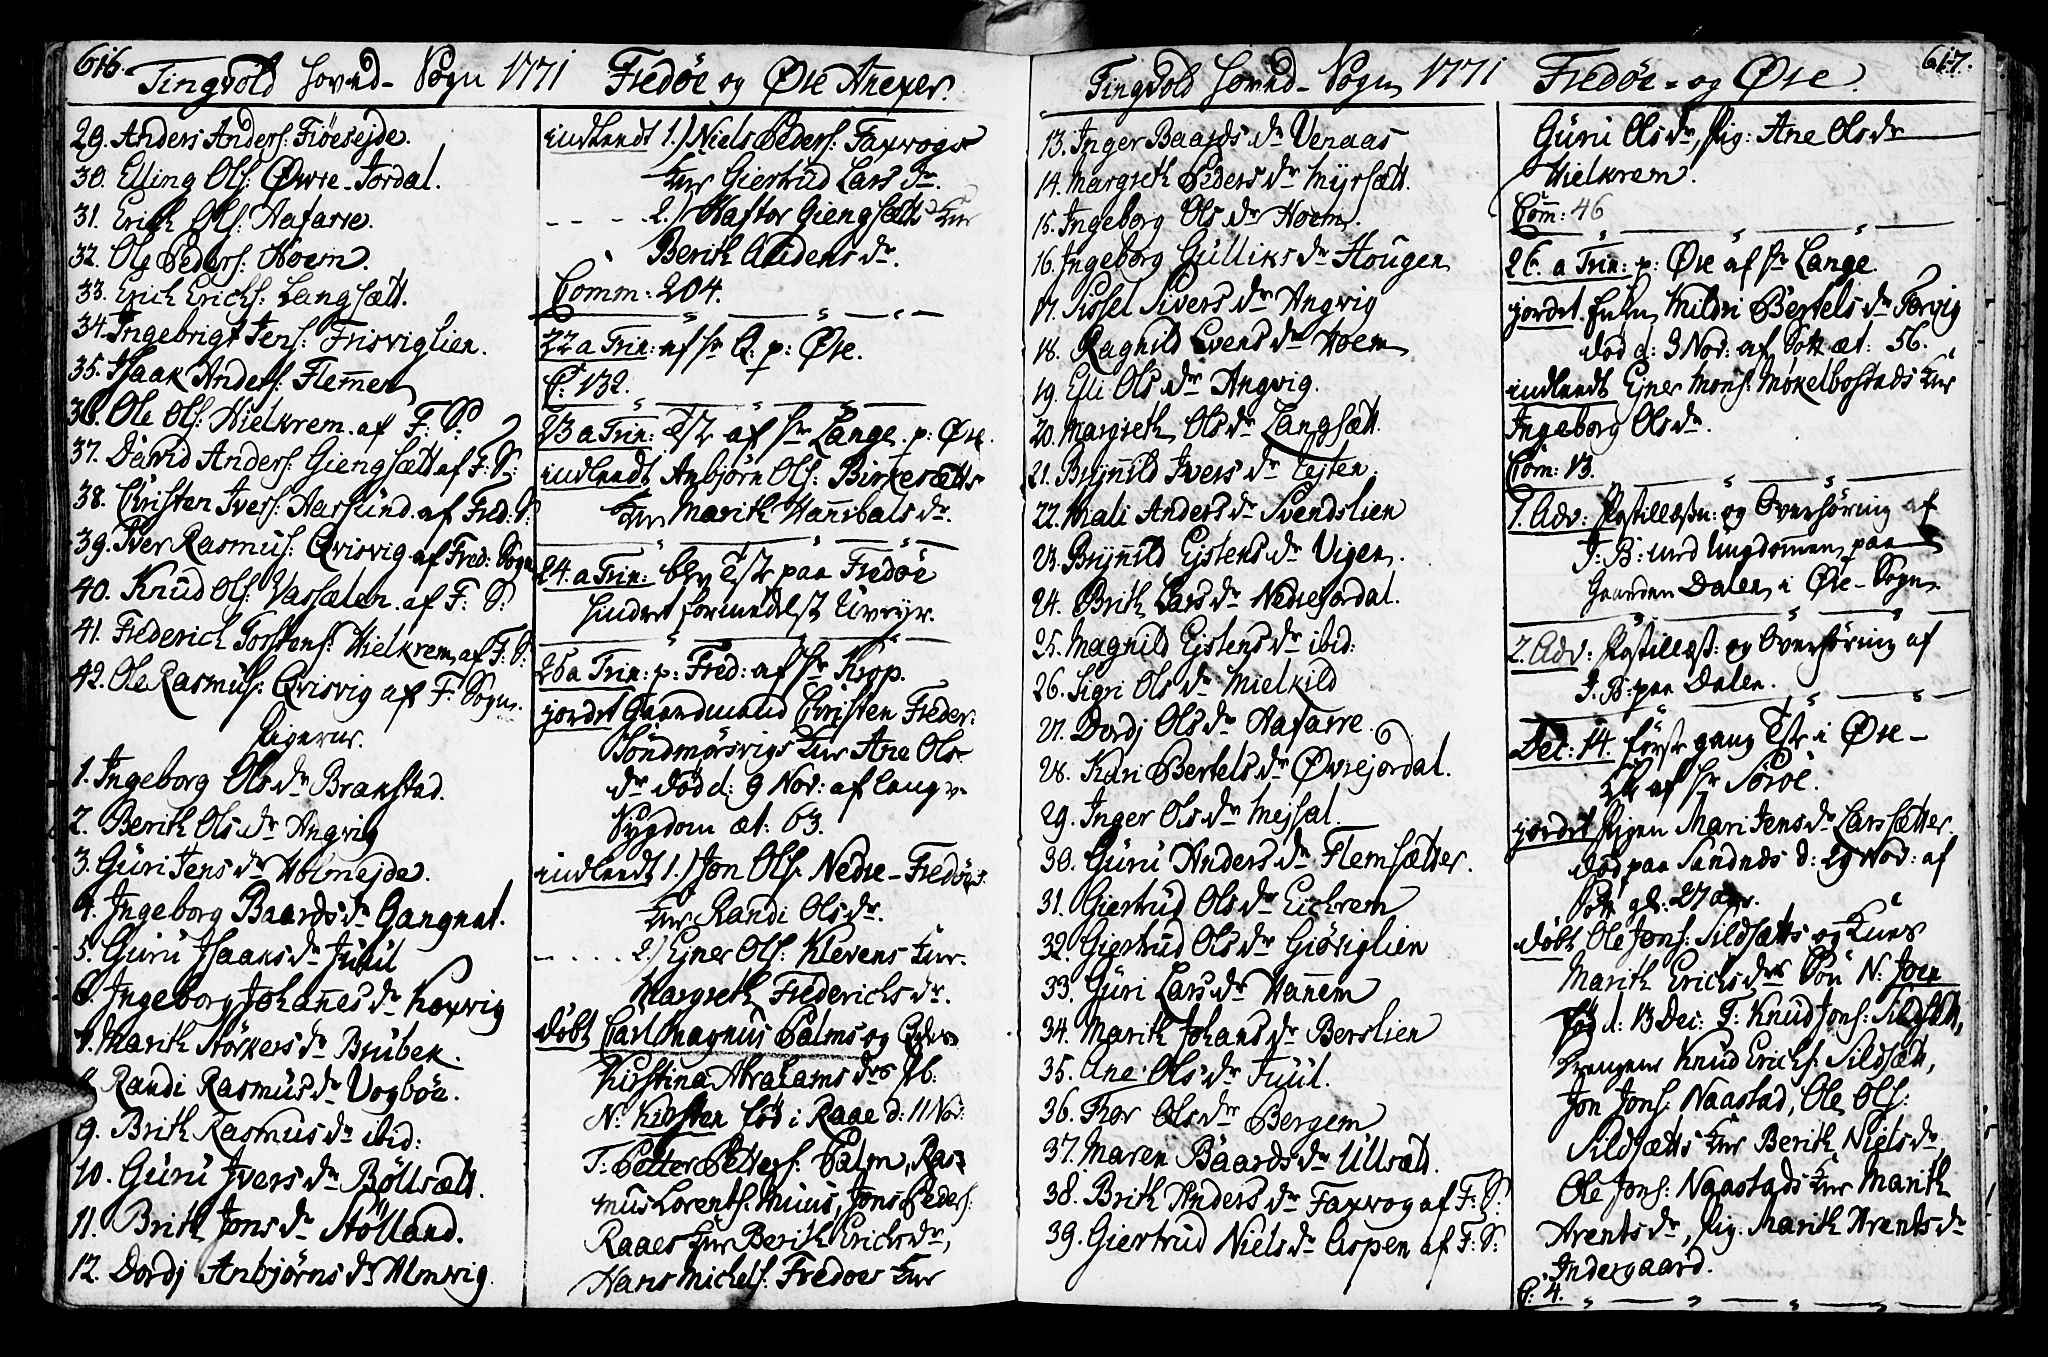 616.
Tingvold Hoved-Sogn 1771 Fredöe og Öre Anexer.
29. Anders Anders: Fiöesejde.
30. Elling Ols: Övre-Jordal.
31. Erich Ols: Hafarre.
32. Ole Peders: Hoem.
33. Erich Erichs: Langsætt.
34. Ingebrigt Jens: Frisviglien.
35. Isaak Anders: Flemmen
36. Ole Ols: Hielkrem af F: S:
37. David Anders: Giengsætt af F: S:
38. Christen Ivers: Aarsund af Fred: S:
39. Iver Rasmus: Qvisvig af Fred: Sogn
40. Knud Ols: Vassælen af F: S:
41. Frederich Torstens: Hielkrem af F: S:
42. Ole Rasmus: Qvisvig af F: Sogn.
Pigerne.
1. Ingeborg Ols dr Brakstad.
2. Berith Ols dr Angvig
3. Guri Jens dr Holmejde.
4. Ingeborg Baards dr Gangnat.
5. Guru Isaaks dr Juul
6. Ingeborg Johannes dr Koxvig
7. Marith Störkers dr Brubek.
8. Randi Rasmus dr Vogböe.
9. Brith Rasmus dr ibid:
10. Guru Ivers dr Böllsætt.
11. Brith Jons dr Stölland.
12. Dordj Anbjörns dr Holmvig.
indleedt 1.) Niels Peders: Faxvogs
Kur Giertrud Lars dr.
- - - 2.) Haftor Giengsætts Kur
Berith Audens dr.
Comm: 204.
22 a Trin: af Hr Q: p: Öre.
C: 132.
23 a Trin: Tste af Hr Lange p: Öre.
indleedt Anbjörn Ols: Birkesætts
Kur Marith Hannibals dr.
24. a Trin: blev Tste paa Fredöe
hindret formedelst Uveyr.
25 a Trin: p: Fred: af Hr Krop.
jordet Gaardmand Christen Freder:
Söndmörsvigs Kur Ane Ols
dr död d: 9 Nov: af langv.
Sygdom æt: 63.
indleedt 1.) Jon Ols: Nedre-Fredöes
Kur Randi Ols dr.
- - - - 2.) Ejner Ols: Klevens Kur.
Margreth Frederichs dr.
döbt Carl Magnus Palms og
Kirstina Abrahams drs Pb:
N: Kirsten föd i Raae d: 11 Nov:
T: Petter Petters: Palm, Ras-
mus Lorents: Muus, Jons Peders:
Raaes Kur Berith Erichs dr,
Hans Michels: Fredöes Kur
617.
Tingvold Hoved-Sogn 1771 Fredöe- og Öre.
13. Inger Baards dr Venaas
14. Margreth Peders dr Myrsætt.
15. Ingeborg Ols dr Hoem.
16. Ingeborg Gulliks dr Hougen
17. Sissel Sivers dr Angvig
18. Ragnild Evens dr Hoem
19. Elli Ols dr Angvig.
20. Margreth Ols dr Langsætt.
21. Brynnild Ivers dr Lejten.
22. Mali Anders dr Svendslien
23. Brynnild Ejstens dr Vigen.
24. Brith Lars dr Nedrejordal.
25. Magnild Ejstens dr ibid:
26. Sigri Ols dr Mielkild
27. Dordj Ols dr Hafarre.
28. Kari Bertels dr Övrejordal.
29. Inger Ols dr Mejsal.
30. Guru Anders dr Flemsætter.
31. Giertrud Ols dr Eickrem
32. Giertrud Ols dr Giösviglien
33. Guri Lars dr Hannem
34. Marith Johans dr Berslien
35. Ane Ols dr Juul.
36. Thor Ols dr Bergem
37. Maren Baards dr Ullsætt.
38. Brith Anders dr Faxvog af F: S:
39. Giertrud Niels dr Aspen af F: S:
Guru Ols dr, Pig: Ane Ols dr
Hielkrem.
Com: 46
26. a Trin: p: Öre af Hr Lange.
jordet Enken Mildri Bertels dr Torvig
död d: 3 Nov: af Sott æt: 56.
indleedt Ejner Mons: Mökelbostads Kur
Ingeborg Ols dr.
Com: 13.
1. Adv: Postillæsn: og Overhöring af
J: B: med Ungdommen paa
Gaarden Dalen i Öre-Sogn.
2. Adv: Postillæsn: og Overhöring af
J: B: paa Dalen.
Dec: 14. förste gang Tste i Öre-
Kk af Hr Söröe.
jordet Pigen Mari Jens dr Larssætter
död paa Sandnes d: 29 Nov: af
Sott gl: 27 aar.
döbt Ole Jons: Sildsætts og Kones
Marith Erichs drs Sön N: Joen
föd d: 13 Dec: T: Knud Jons: Sildsætt,
Drengene Knud Erichs: Sildsætt,
Jon Jons: Naastad, Ole Ols:
Sildsætts Kur Berith Niels dr,
Ole Jons: Naastads Kur Marith
Arents dr, Pig: Marith Arents dr
Indergaard.
C: 4.